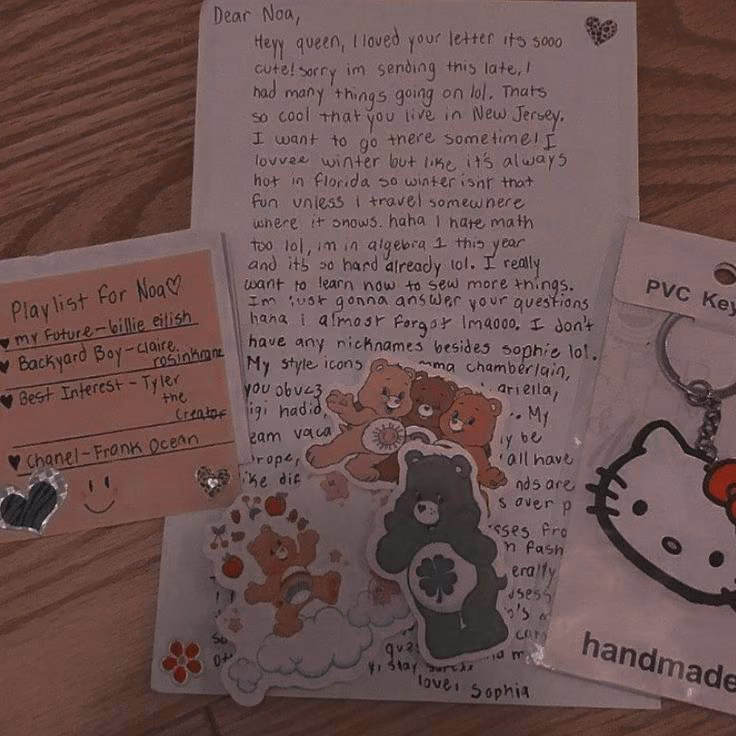 Dear Noa,
Heyy queen, I loved your letter its sooo
cute! sorry im sending this late, I
had many things going on lol. Thats
so cool that you live in New Jersey.
I want to go there sometime! I
lovvee winter but like it's always
hot in florida so winter isnt that
fun unless i travel somewhere
where it snows. haha I hate math
too lol, im in algebra 1 this year
and its so hard already lol. I really
want to learn how to sew more things.
Im just gonna answer your questions
haha i almost forgot lmaooo. I don't
have any nicknames besides sophie lol.
My style icons mma chamberlain,
you obv<3 ariella,
igi hadid, My
eam vaca y be
rope, all have
ke dif nds are
s over p
sses fro
n fash
erally
love, Sophia
Playlist for Noa♡
♥ my future - billie eilish
♥ Backyard Boy - claire
rosinkranz
♥ Best Interest - Tyler
the
Creator
♥ Chanel - Frank Ocean
PVC Key
handmade